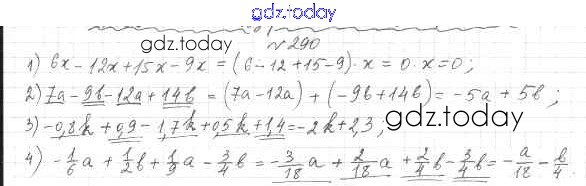 gdz.today
№290
gdz.today
1) 6x - 12x + 15x - 9x = (6 - 12 + 15 - 9) · x = 0 · x = 0;
2) 7a - 9b - 12a + 14b = (7a - 12a) + (-9b + 14b) = -5a + 5b;
gdz.today
3) -0,8k + 0,9 - 1,7k + 0,5k + 1,4 = -2k + 2,3;
4) -1/6 a + 1/2 b + 1/9 a - 3/4 b = -3/18 a + 2/18 a + 2/4 b - 3/4 b = -a/18 - b/4.